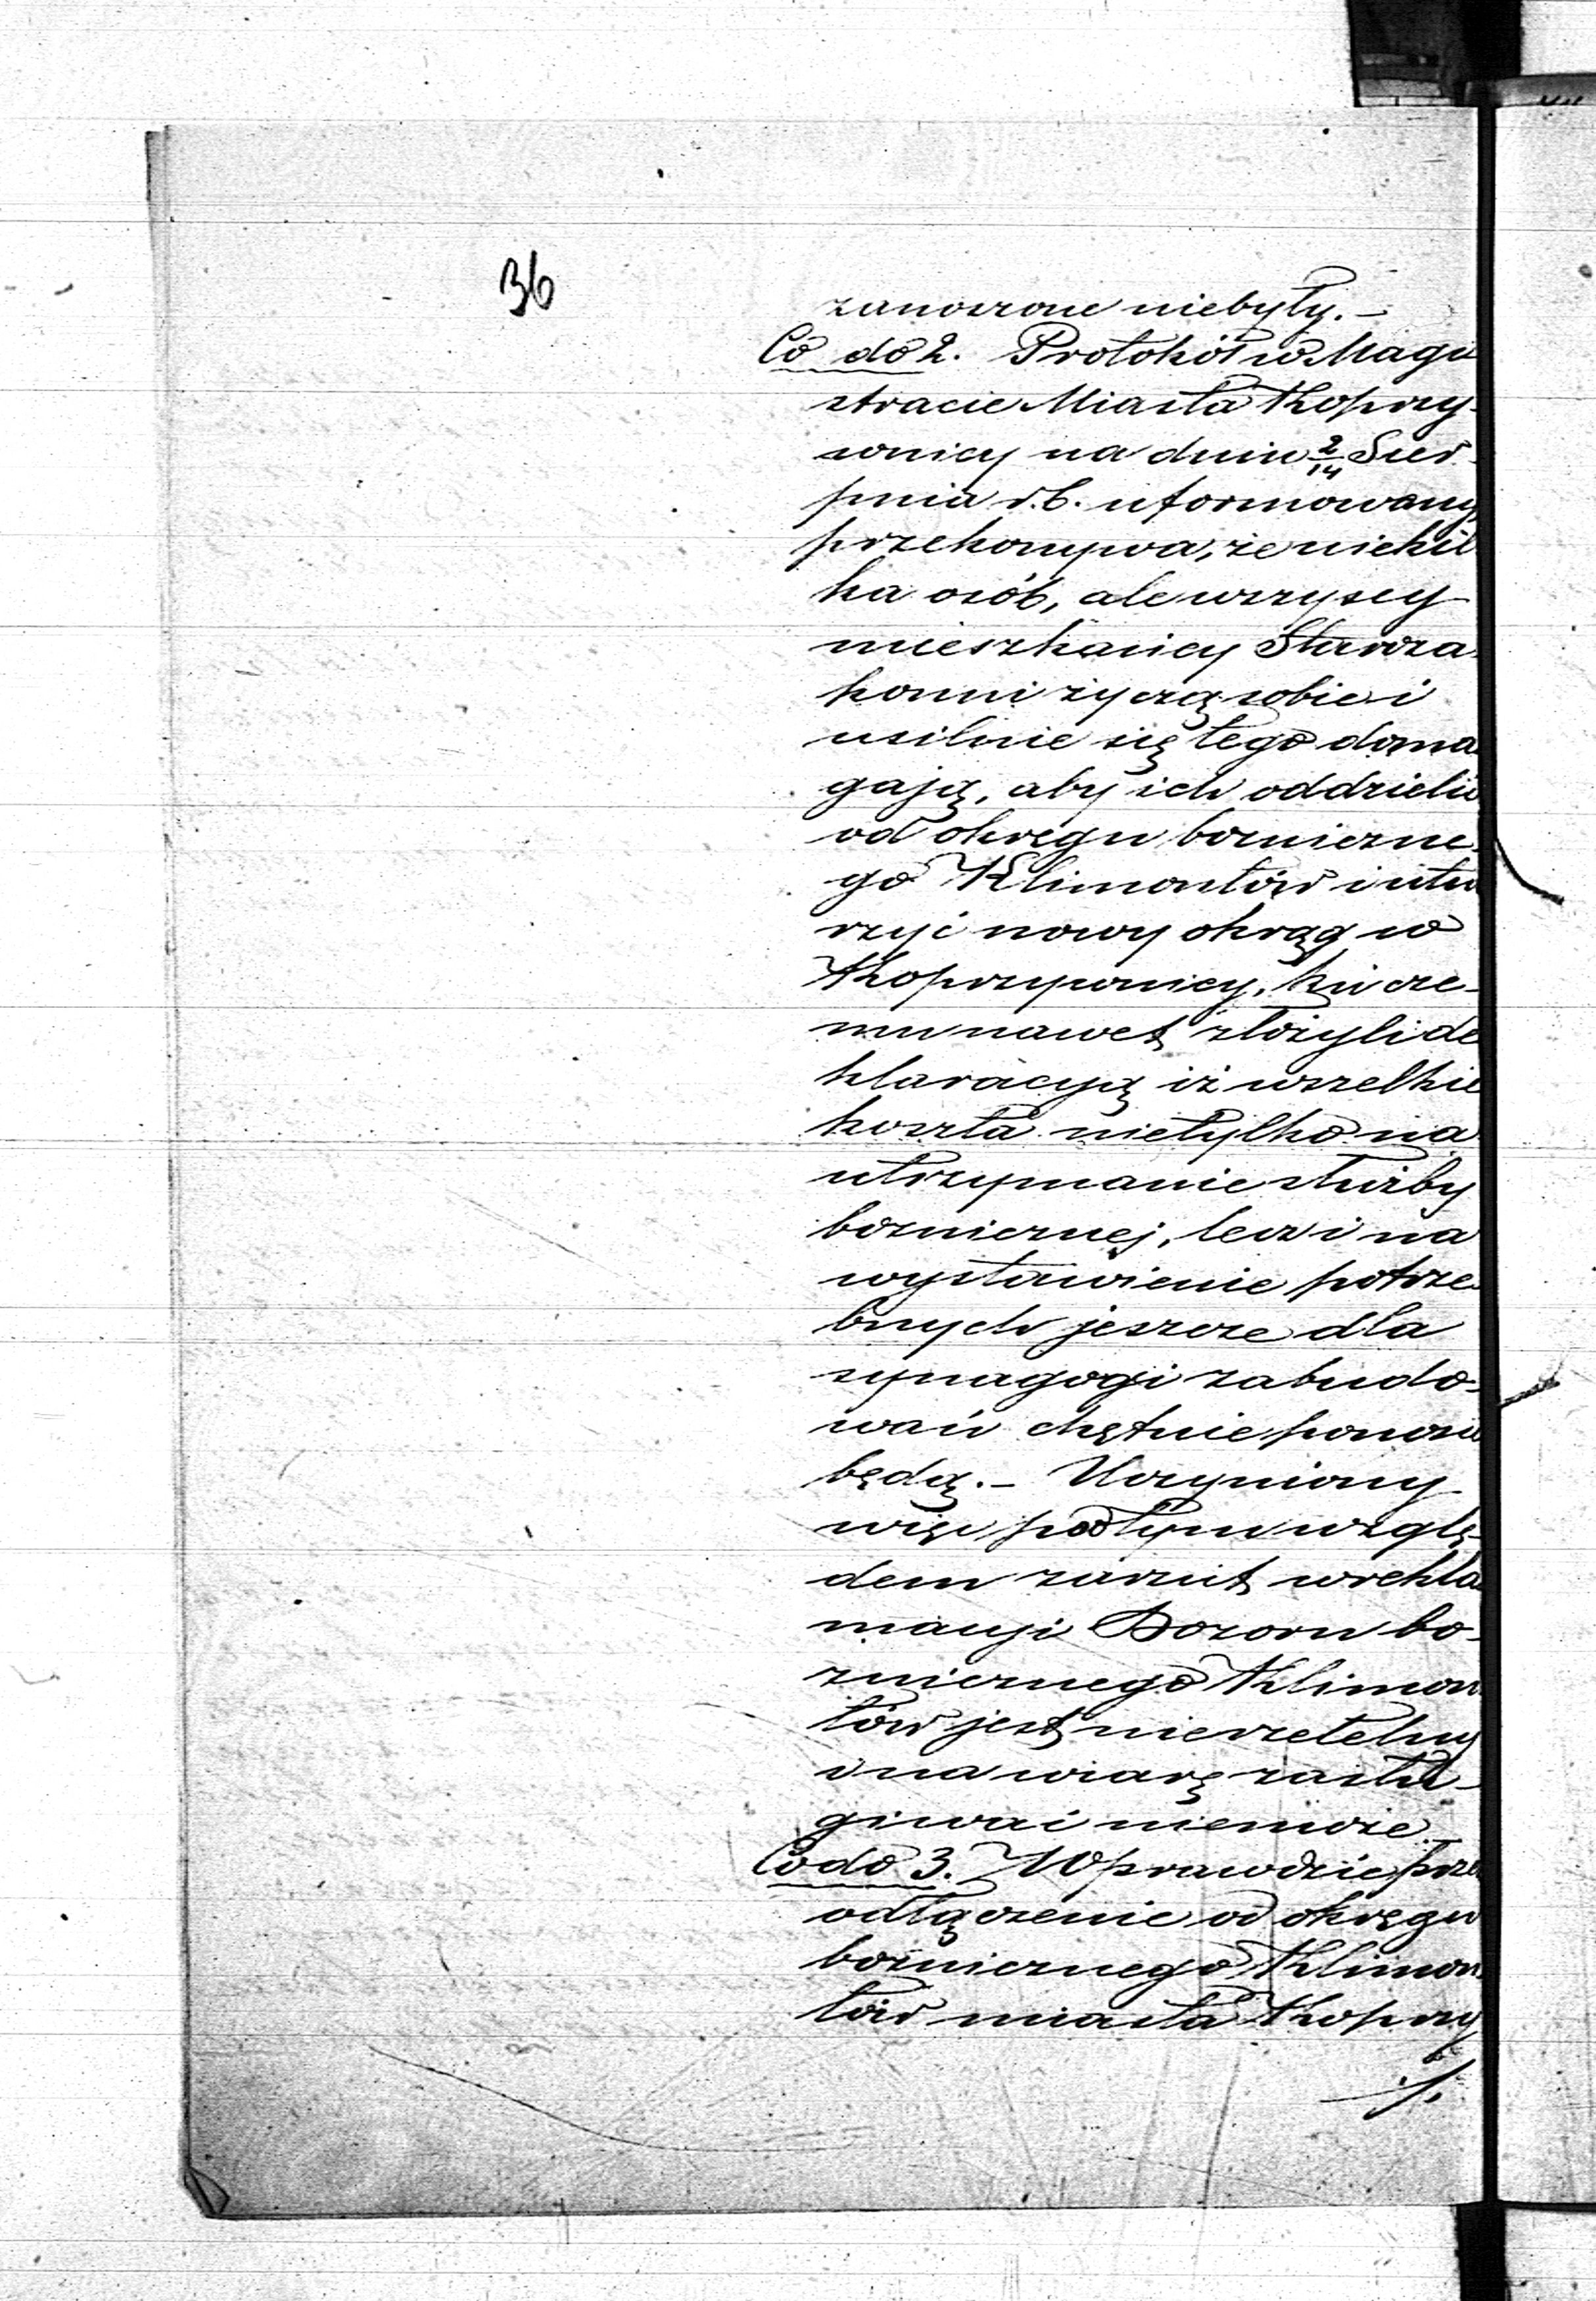 36
zanoszone niebyły. –
Co do 2. Protokół w Magi
stracie Miasta Koprzy-
wnicy na dniu 2/14 Sier-
pnia r.b. uformowany
przekonywa, że niekil
ka osób, ale wszyscy
mieszkańcy Starza
konni życzą sobie i
usilnie się tego doma
gają, aby ich oddzielić
od okręgu bożniczne-
go Klimontów i utw
rzyć nowy okrąg w
Koprzywnicy, ku cze-
mu nawet złożyli de
klaracyą iż wszelkie
koszta nietylko na
utrzymanie służby
bożnicznej, lecz i na
wystawienie potrze
bnych jeszcze dla
synagogi zabudo-
wań chętnie ponosić
będą. – Uczyniony
więc pod tym wzglę-
dem zarzut w rekla
macyi Dozoru bo-
żnicznego Klimon
tów jest nierzetelny
i na wiarę zasłu-
giwać niemoże
Co do 3. Wprawdzie prze
odłączenie od okręgu
bożnicznego Klimon
tów miasta Koprzy
./.